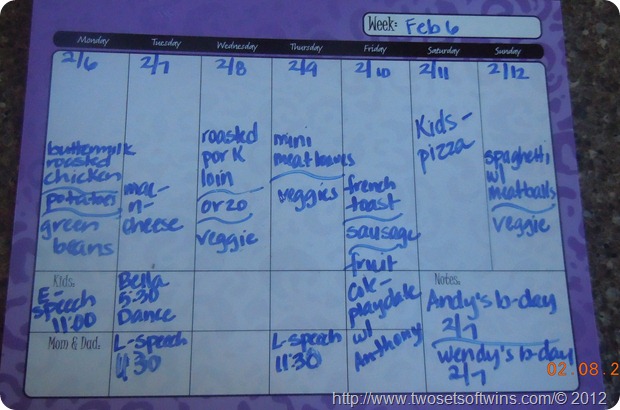 Week: Feb 6
Monday Tuesday Wednesday Thursday Friday Saturday Sunday
2/6 2/7 2/8 2/9 2/10 2/11 2/12
buttermilk
roasted
chicken
potatoes
green
beans
mac-
n-
cheese
roasted
pork
loin
orzo
veggie
mini
meatloaves
veggies
french
toast
sausage
fruit
Kids-
pizza
spaghetti
w/
meatballs
veggie
Kids:
E-
speech
11:00
Bella
5:30
Dance
playdate
w/
Anthony
Mom & Dad:
L-speech
4:30
L-speech
11:30
Notes:
Andy's b-day
2/7
Wendy's b-day
2/7
02.08.2
http://www.twosetsoftwins.com/© 2012